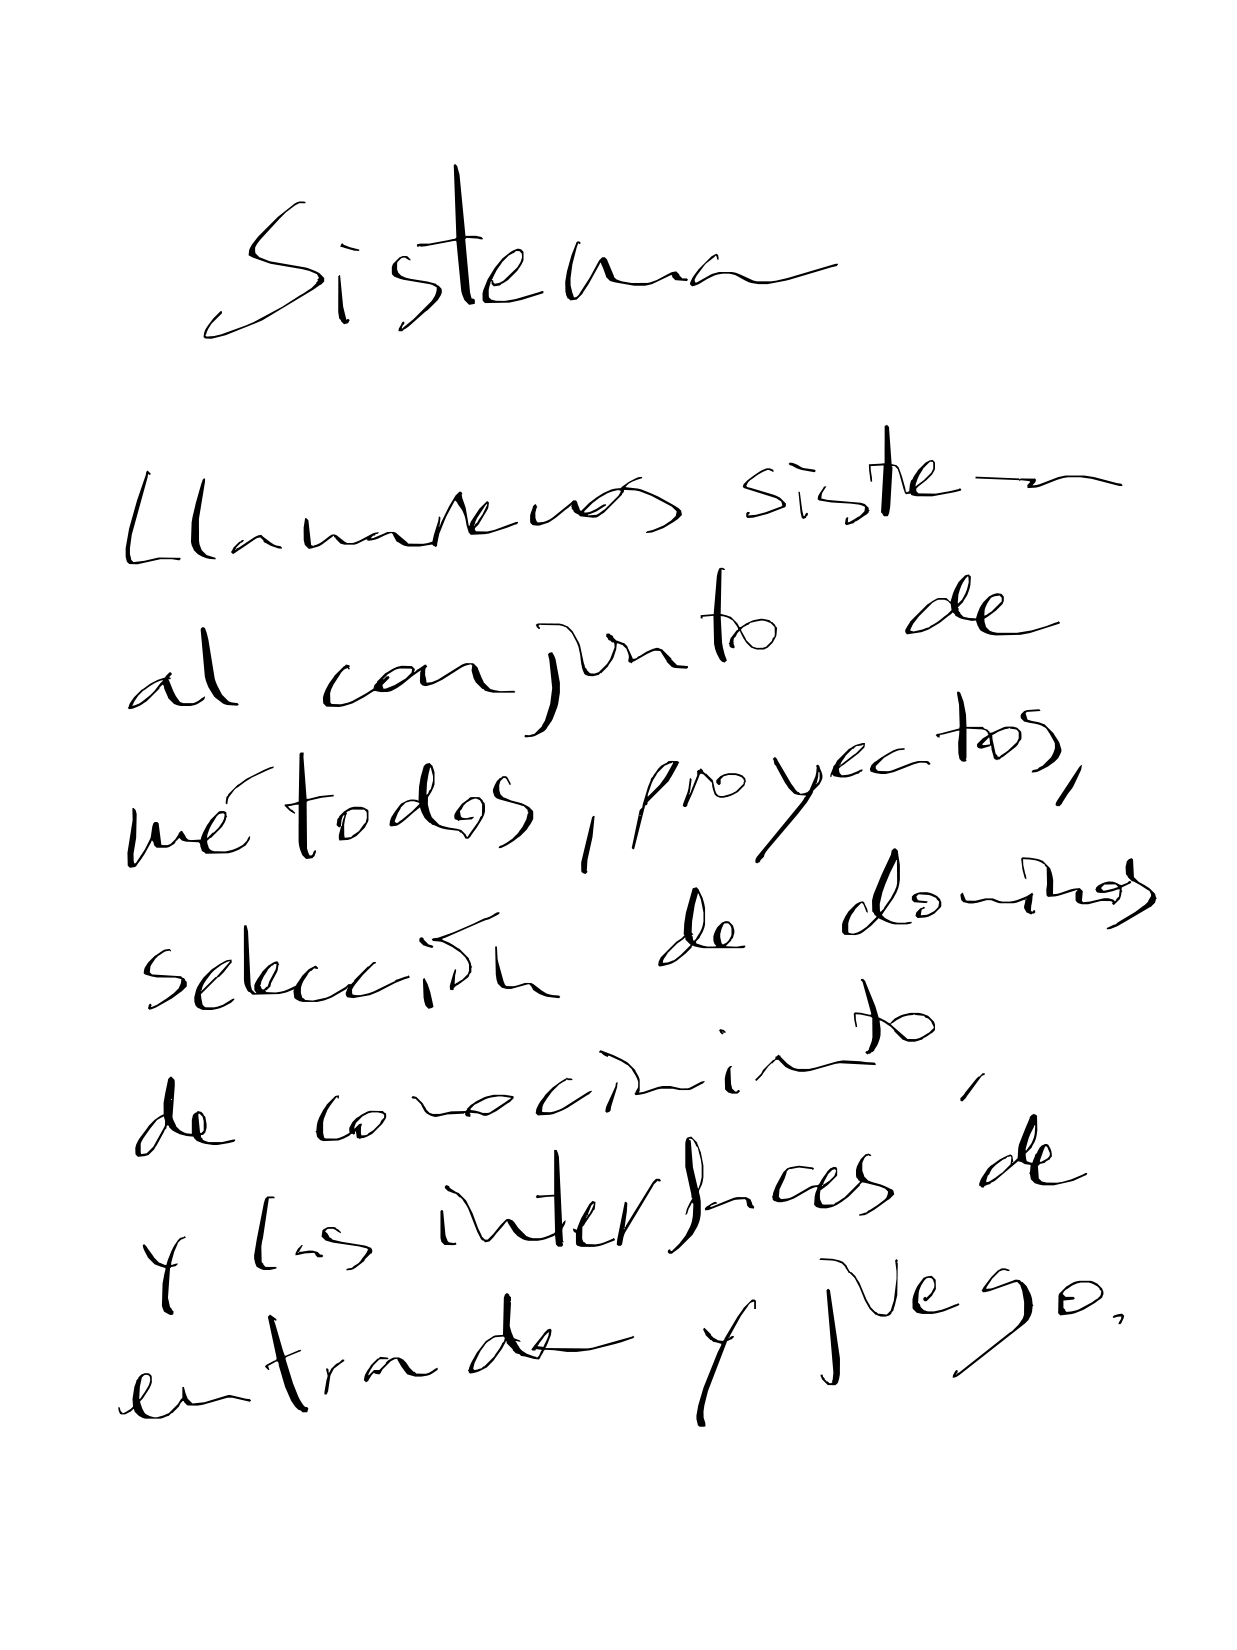 Sistema
Llamaremos sistema
al conjunto de
métodos, proyectos,
selección de dominios
de conocimiento,
y las interfaces de
entrada y juego.